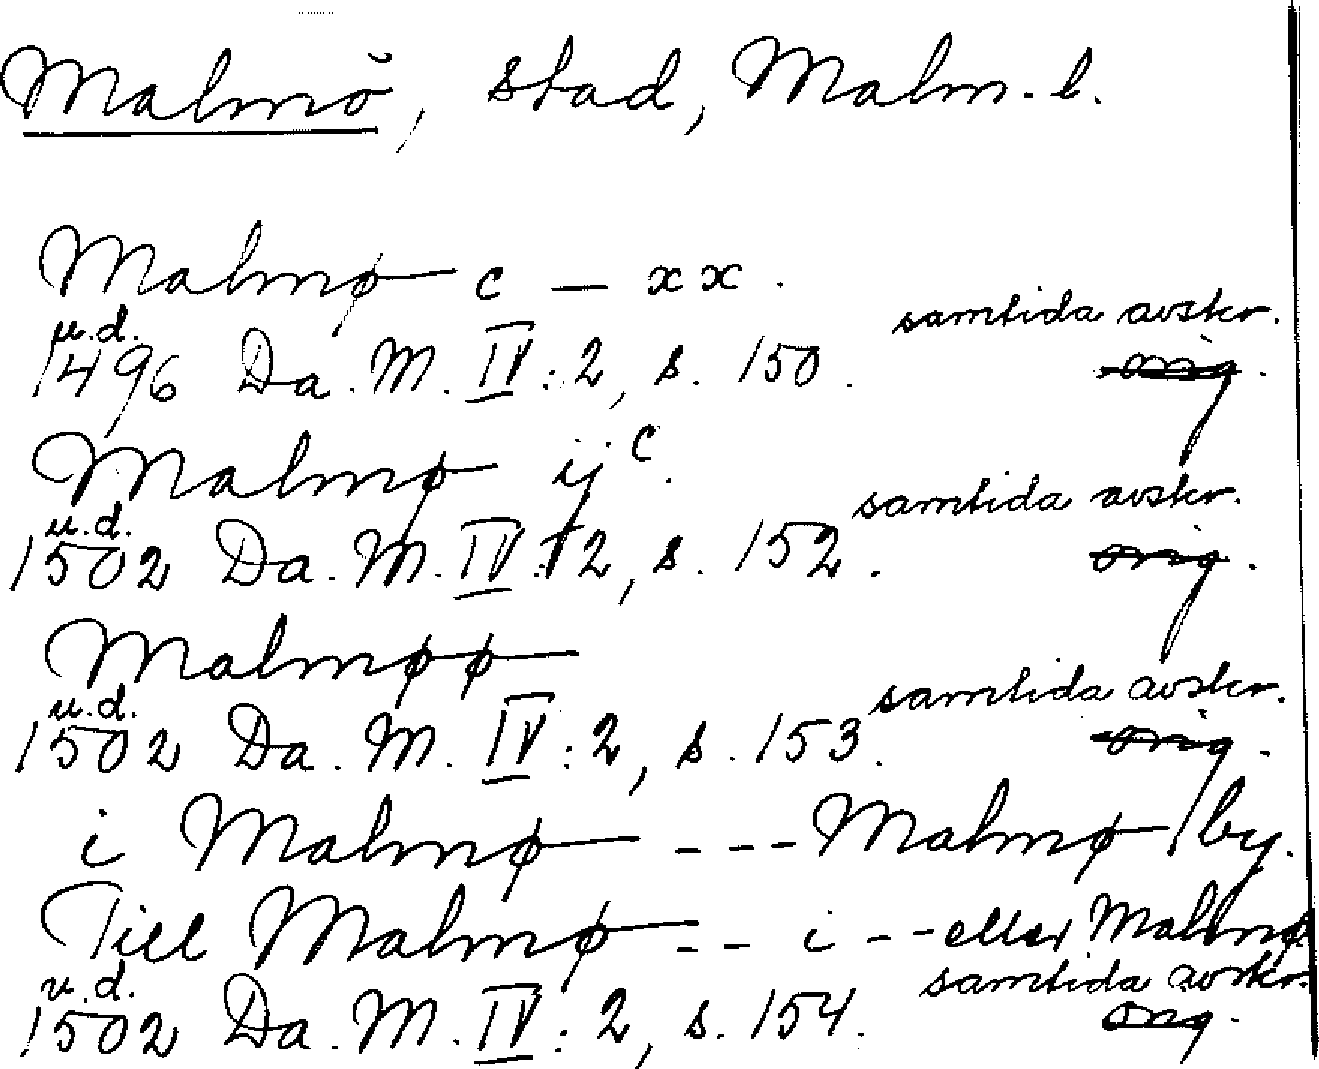 Malmö, stad, Malm. l.
Malmø c – xx.
u.d. samtida avskr.
1496 Da. M. IV:2, s. 150. orig.
Malmø ij c.
u.d. samtida avskr.
1502 Da. M. IV:2, s. 152. orig.
Malmøø
u.d. samtida avskr.
1502 Da. M. IV:2, s. 153. orig.
i Malmø --- Malmø by.
Till Malmø -- i -- eller Malmø
u.d. samtida avskr.
1502 Da. M. IV:2, s. 154. orig.